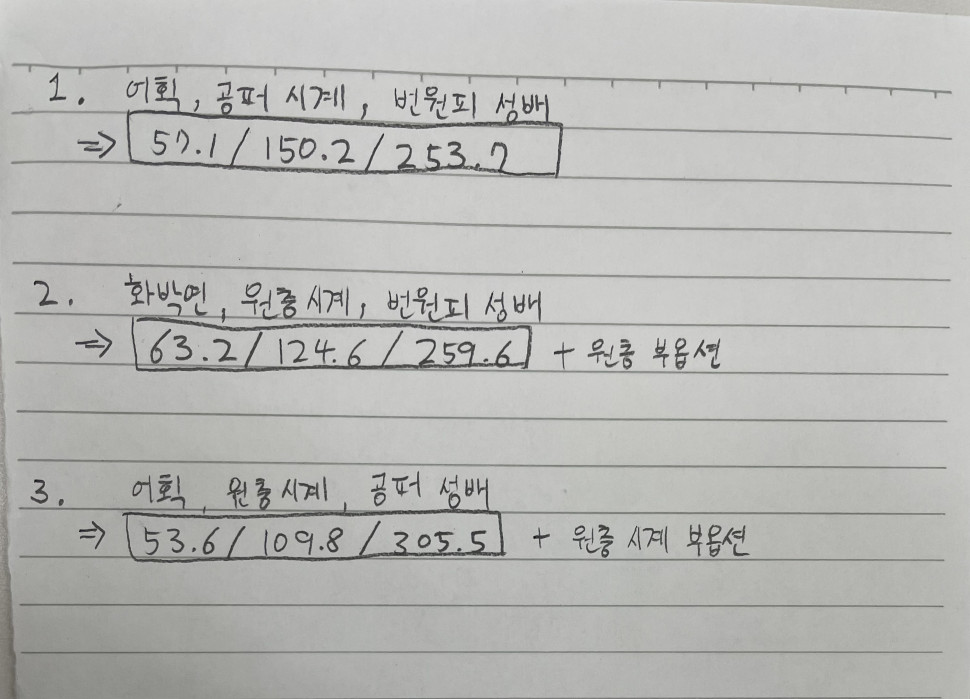 1. 어획, 공퍼 시계, 번원피 성배
⇒ 57.1 / 150.2 / 253.7
2. 화박연, 원충시계, 번원피 성배
⇒ 63.2 / 124.6 / 259.6 + 원충 부옵션
3. 어획, 원충시계, 공퍼 성배
⇒ 53.6 / 109.8 / 305.5 + 원충 시계 부옵션